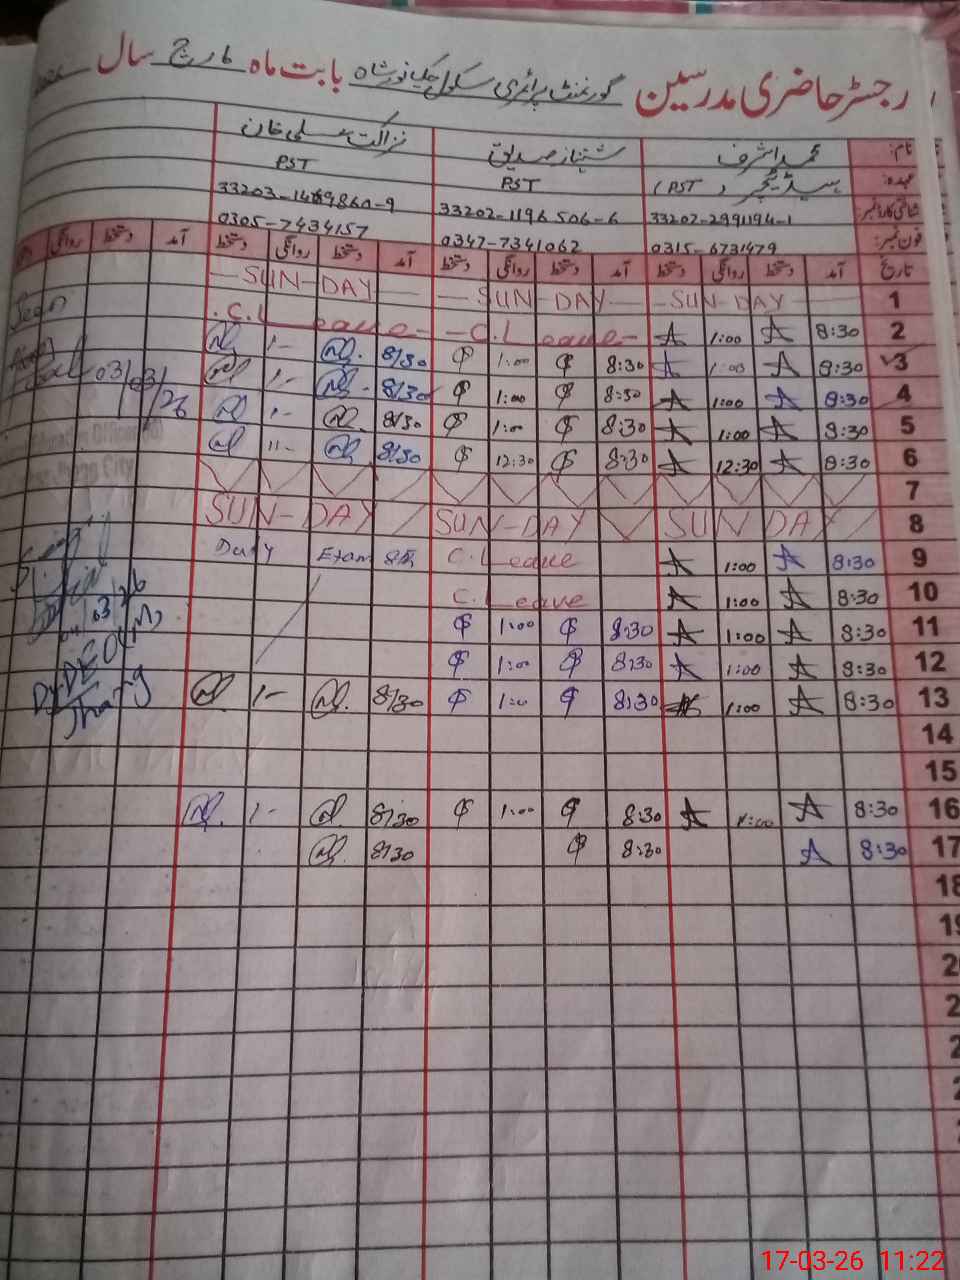 رجسٹر حاضری مدرسین گورنمنٹ پرائمری سکول چک نورشاہ بابت ماہ مارچ سال
نام: محمد اشرف شہباز صدیق نزاکت علی خان
عہدہ: ہیڈ ٹیچر (PST) PST PST
شناختی کارڈ نمبر: 33202-2991194-1 33202-1196506-6
فون نمبر: 0315-6731479 0347-7341062 0305-7434157
تاریخ آمد دستخط روانگی دستخط آمد دستخط روانگی دستخط آمد دستخط روانگی دستخط آمد دستخط روانگی
1 SUN-DAY SUN-DAY SUN-DAY
2 8:30 1:00 C.Leave C.Leave
3 8:30 1:00 8:30 1:00 8/30 1-
4 8:30 1:00 8:30 1:00 8/30 1-
5 8:30 1:00 8:30 1:00 8/30 1-
6 8:30 12:30 8:30 12:30 8/30 11-
7
8 SUN DAY SUN-DAY SUN-DAY
9 8:30 1:00 C.Leave Duty Exam
10 8:30 1:00 C.Leave
11 8:30 1:00 8:30 1:00
12 8:30 1:00 8:30 1:00
13 8:30 1:00 8:30 1:00 8/30 1-
14
15
16 8:30 1:00 8:30 1:00 8/30 1-
17 8:30 8:30 8/30
18
Seen
03/03/26
Jhang City
Dy.DEO(M)
Jhang
17-03-26 11:22